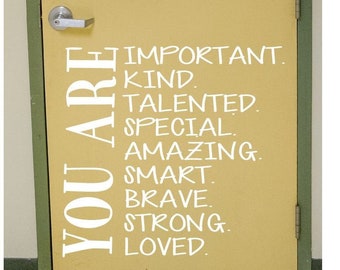 YOU ARE
IMPORTANT.
KIND.
TALENTED.
SPECIAL.
AMAZING.
SMART.
BRAVE.
STRONG.
LOVED.